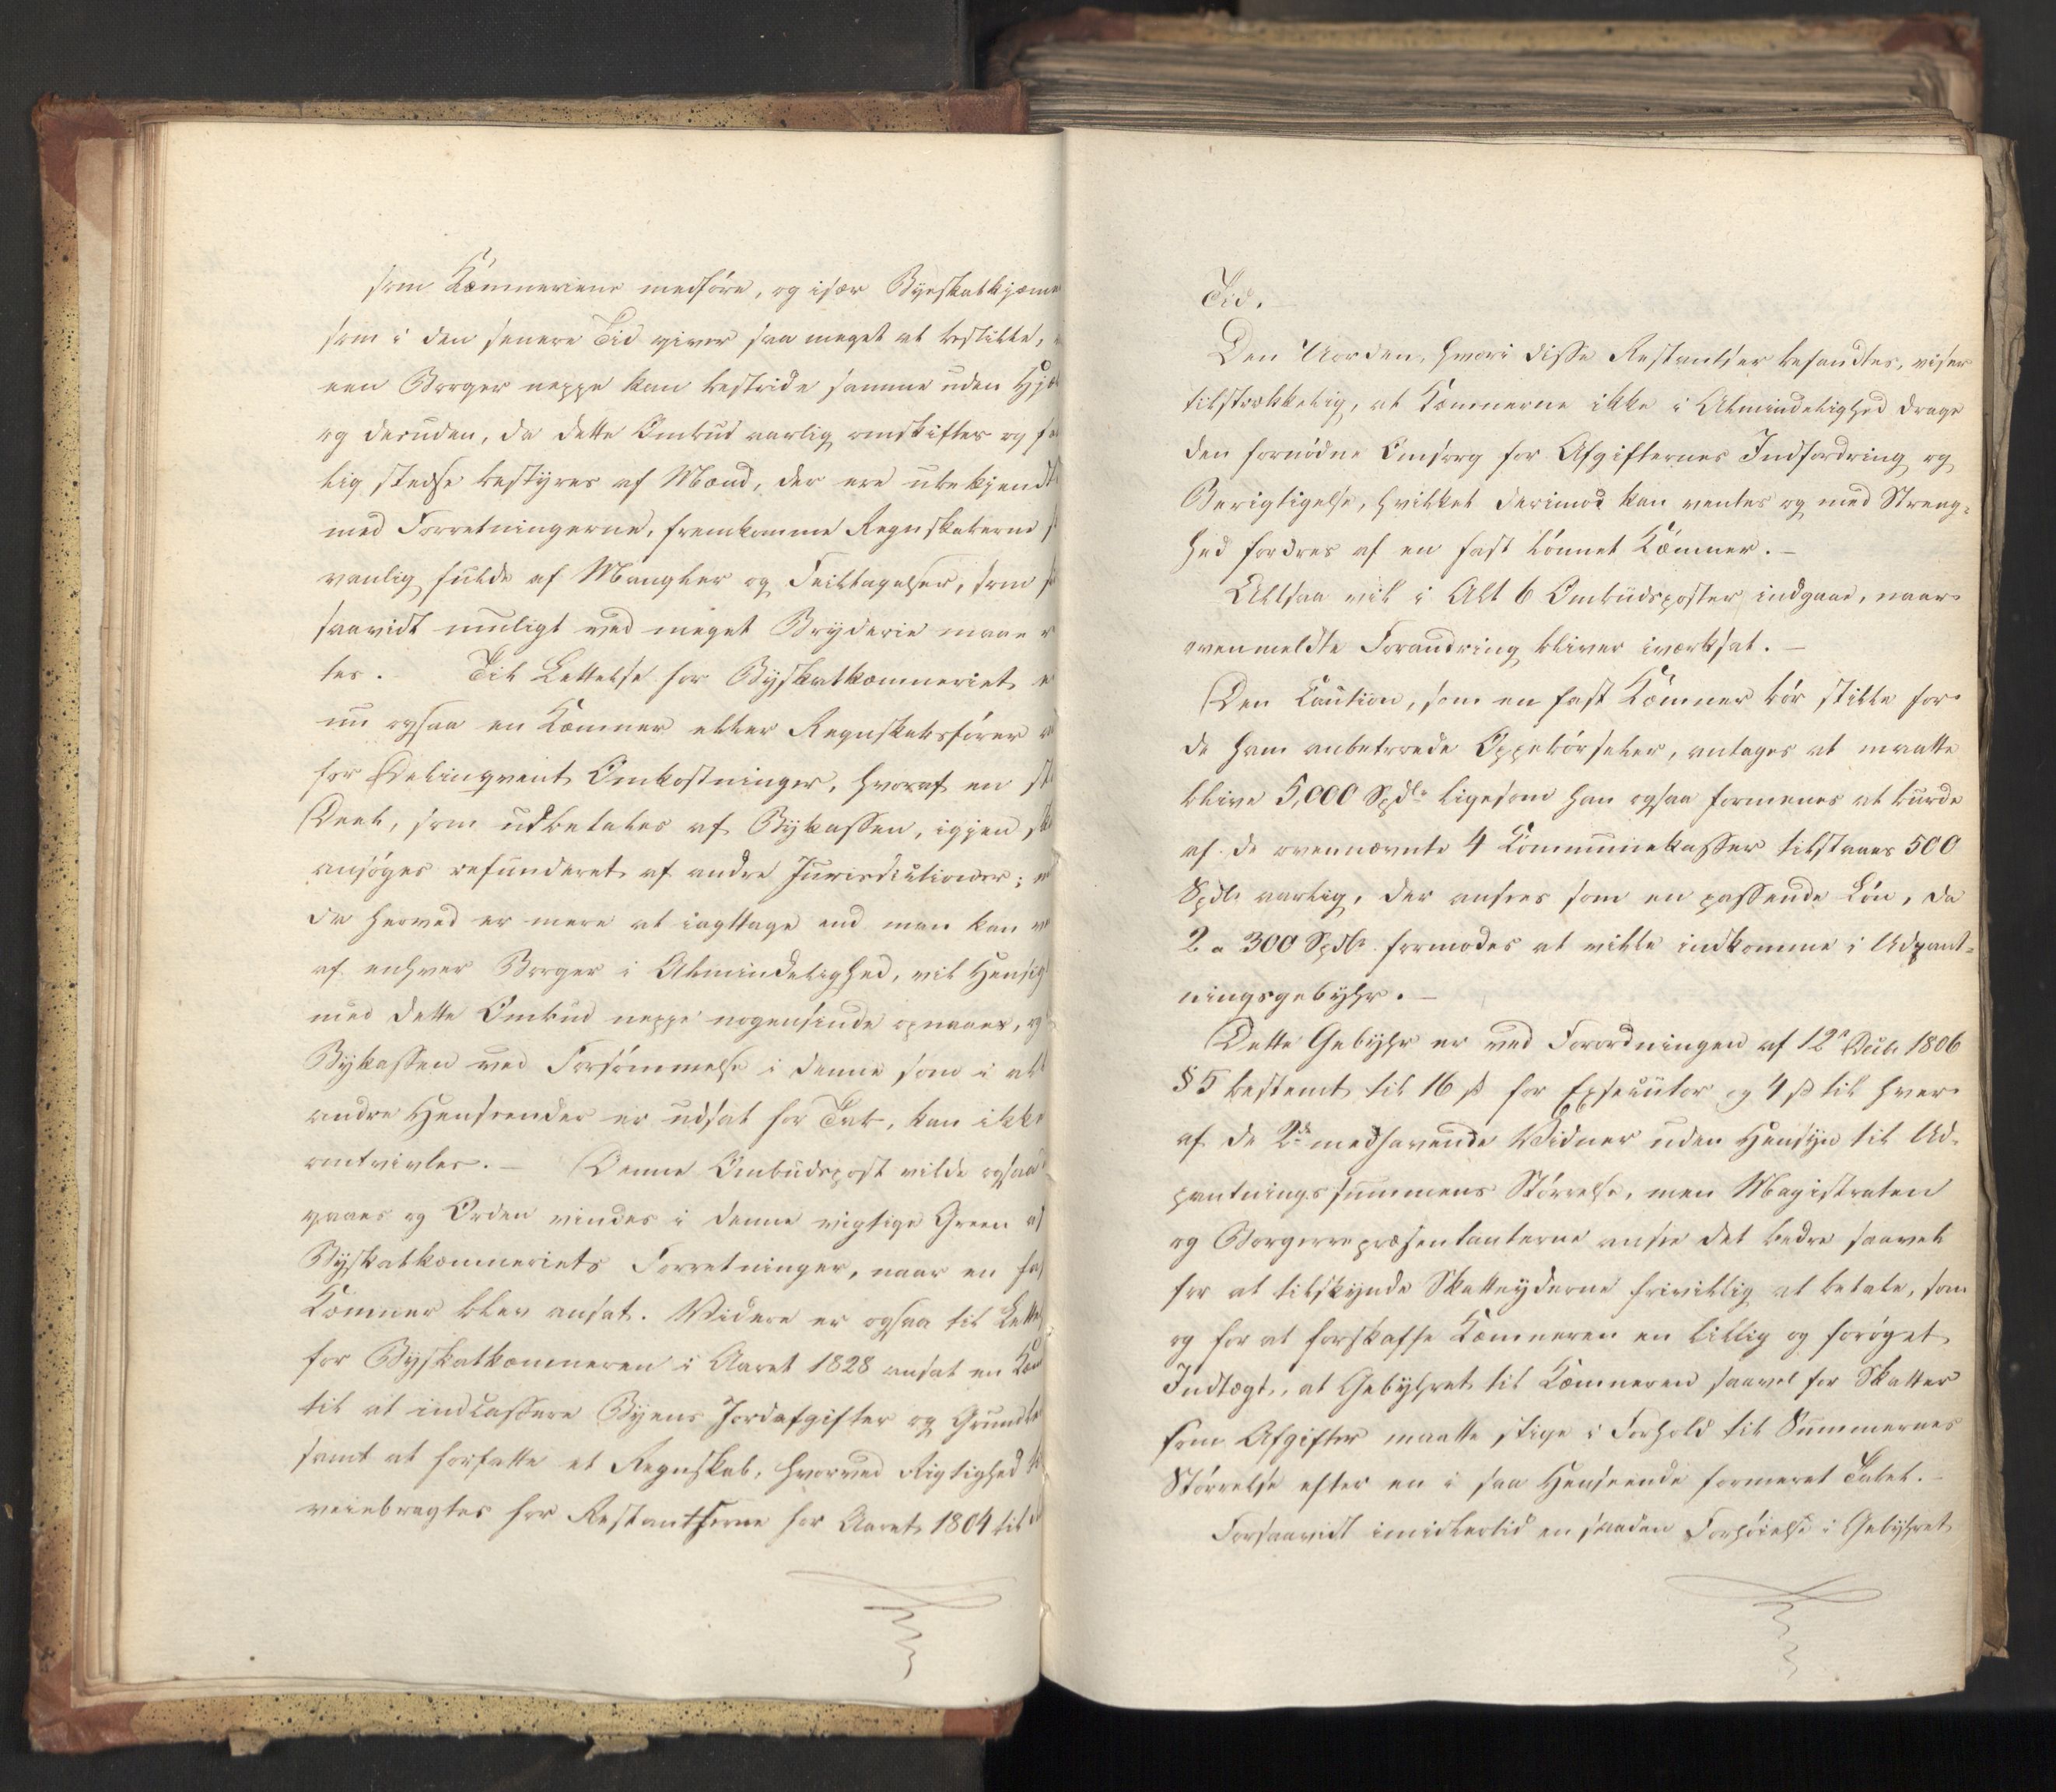 som Kæmnerierne medføre, og især Byeskatkjæmne
som i den senere Tid giver saa meget at bestille,
een Borger neppe kan bestride samme uden Hjæl
og desuden, da dette Ombud aarlig omskiftes og
lig stedse bestyres af Mænd, der ere ubekjendte
med Forretningerne, fremkomme Regnskaberne
vanlig fulde af Mangler og Feiltagelser, som
saavidt muligt ved meget Bryderie maae
tes. Til Lettelse for Byskatkæmneriet
nu ogsaa en Kæmner eller Regnskabsfører
for Delinqvent Omkostninger, hvoraf en
Deel, som udbetales af Bykassen, igjen
ansøges refunderet af andre Jurisdictioner;
da herved er mere at iagttage end man kan
af enhver Borger i Almindelighed, vil Hensig
med dette Ombud neppe nogensinde opnaaes, og
Bykassen ved Forsømmelse i denne som i alle
andre Henseender er udsat for Tab, kan ikke
omtvivles. – Denne Ombudspost vilde ogsaa
gaaes og Orden vindes i denne vigtige Green af
Byskatkæmneriets Forretninger, naar en fas
Kæmner blev ansat. Videre er ogsaa til Lettel
for Byskatkæmneren i Aaret 1828 ansat en Kæm
til at indcassere Byens Jordafgifter og Grundle
samt at forfatte et Regnskab, hvorved Rigtighed
veiebragtes for Restantserne for Aaret 1804 til
Tid.
Den Uorden, hvori disse Restantser befandtes, viser
tilstrækkelig, at Kæmnerne ikke i Almindelighed drage
den fornødne Omsorg for Afgifternes Indfordring og
Berigtigelse, hvilket derimod kan ventes og med Streng-
hed fordres af en fast lønnet Kæmner. –
Altsaa vil i Alt 6 Ombudsposter indgaae, naar
ovenmeldte Forandring bliver iværksat. –
Den Caution, som en fast Kæmner bør stille for
de ham anbetroede Oppebørseler, antages at maatte
blive 5,000 Spdlr ligesom han ogsaa formenes at burde
af de ovennævnte 4 Communekasser tilstaaes 500
Spdlr aarlig, der ansees som en passende Løn, da
2 a 300 Spdlr formodes at ville indkomme i Udpant-
ningsgebyhr. –
Dette Gebyhr er ved Forordningen af 12te Decbr 1806
§ 5 bestemt til 16 ß for Exsecutor og 4 ß til hver
af de 2de medhavende Vidner uden Hensyn til Ud-
pantningssummens Størrelse, men Magistraten
og Borgerrepræsentanterne ansee det bedre saavel
for at tilskynde Skatteyderne frivillig at betale, som
og for at forskaffe Kæmneren en billig og forøget
Indtægt, at Gebyhret til Kæmneren saavel for Skatter
som Afgifter maatte stige i Forhold til Summernes
Størrelse efter en i saa Henseende formeret Tabel. –
Forsaavidt imidlertid en saadan Forhøielse i Gebyhret